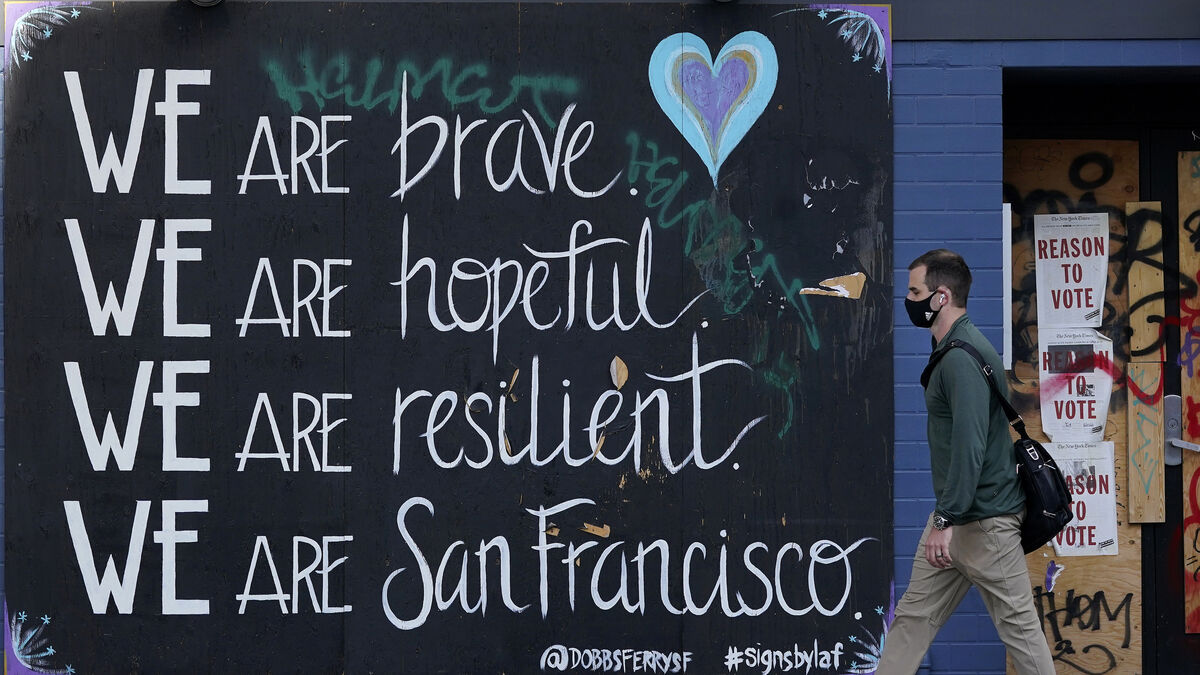 WE ARE brave.
WE ARE hopeful.
WE ARE resilient.
WE ARE San Francisco.
@DOBBSFERRYSF #SIGNSbyLaf
The New York Times
REASON
TO
VOTE
The New York Times
REASON
TO
VOTE
The New York Times
REASON
TO
VOTE